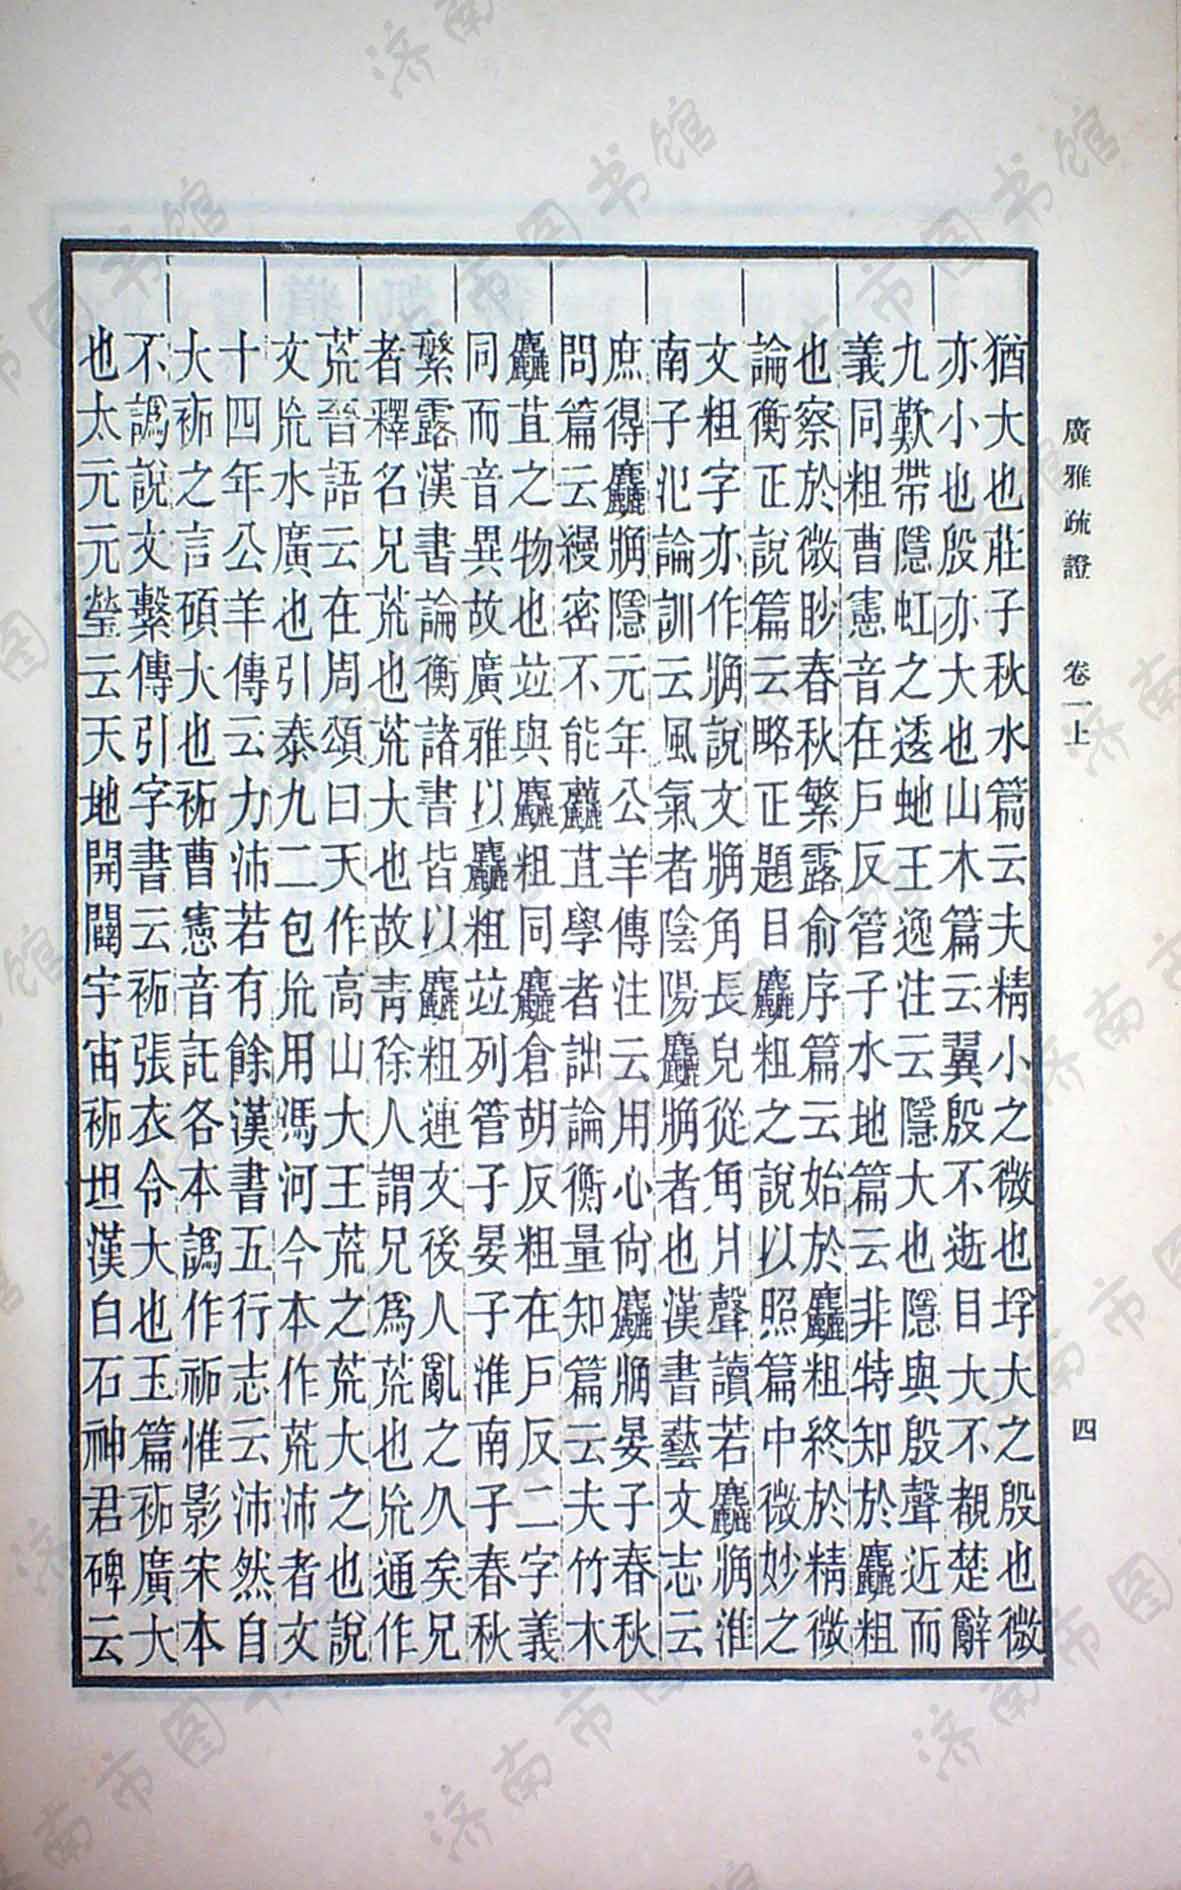 廣雅疏證 卷一上 四
猶大也莊子秋水篇云夫精小之微也垺大之殷也微
亦小也殷亦大也山木篇云翼殷不逝目大不覩楚辭
九歎帶隱虹之逶虵王逸注云隱大也隱與殷聲近而
義同粗曹憲音在戶反管子水地篇云非特知於麤粗
也察於微眇春秋繁露俞序篇云始於麤粗終於精微
論衡正說篇云略正題目麤粗之說以照篇中微妙之
文粗字亦作觕說文觕角長皃從角爿聲讀若麤觕淮
南子氾論訓云風氣者陰陽麤觕者也漢書藝文志云
庶得麤觕隱元年公羊傳注云用心尙麤觕晏子春秋
問篇云縵密不能䕳苴學者詘論衡量知篇云夫竹木
麤苴之物也竝與麤粗同麤倉胡反粗在戶反二字義
同而音異故廣雅以麤粗竝列管子晏子淮南子春秋
繁露漢書論衡諸書皆以麤粗連文後人亂之久矣兄
者釋名兄巟也巟大也故青徐人謂兄爲巟也巟通作
荒晉語云在周頌曰天作高山大王荒之荒大之也說
文巟水廣也引泰九二包巟用馮河今本作荒沛者文
十四年公羊傳云力沛若有餘漢書五行志云沛然自
大袥之言碩大也袥曹憲音託各本譌作祏惟影宋本
不譌說文繫傳引字書云袥張衣令大也玉篇袥廣大
也太元元瑩云天地開闢宇宙袥坦漢白石神君碑云
济南市图书馆